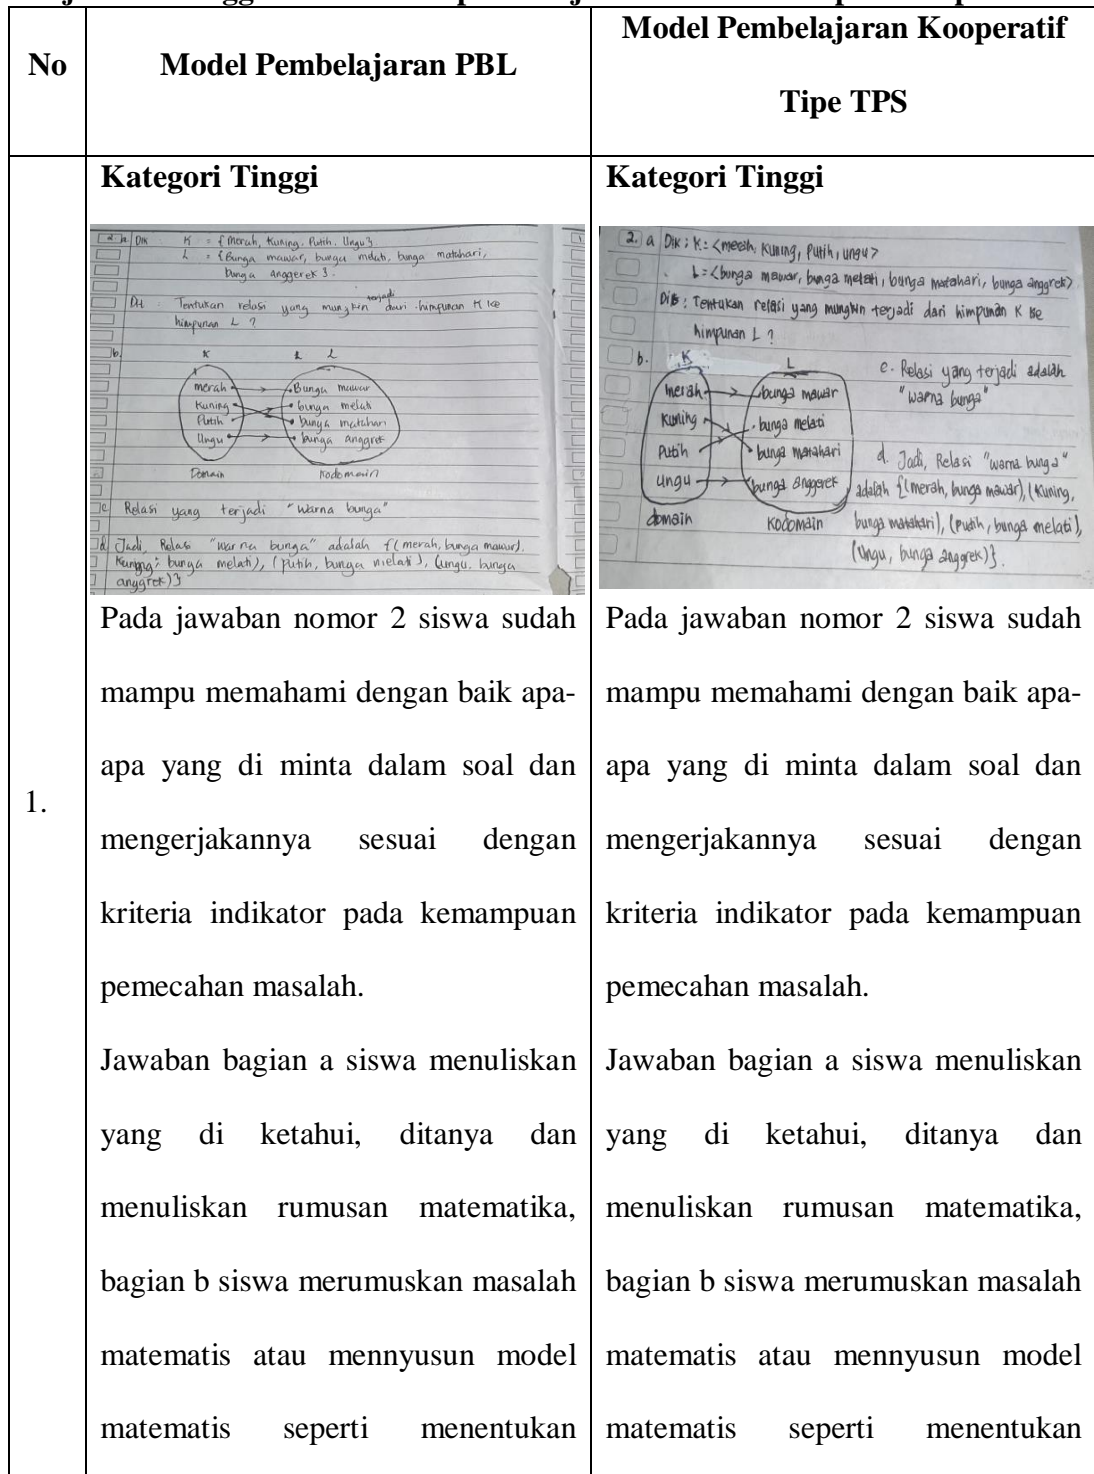 No
Model Pembelajaran PBL
Model Pembelajaran Kooperatif
Tipe TPS
1.
Kategori Tinggi
2. a. Dik : K = {Merah, Kuning, Putih, Ungu}
L = {Bunga mawar, bunga melati, bunga matahari,
bunga anggerek}.
Dit : Tentukan relasi yang mungkin terjadi dari himpunan K ke
himpunan L ?
b.
K L
merah Bunga mawar
Kuning bunga melati
Putih bunga matahari
Ungu bunga anggrek
Domain Kodomain
c Relasi yang terjadi "warna bunga"
d Jadi, Relasi "warna bunga" adalah {(merah, bunga mawar).
Kuning, bunga melati), (putih, bunga melati), (ungu, bunga
anggrek)}
Pada jawaban nomor 2 siswa sudah
mampu memahami dengan baik apa-
apa yang di minta dalam soal dan
mengerjakannya sesuai dengan
kriteria indikator pada kemampuan
pemecahan masalah.
Jawaban bagian a siswa menuliskan
yang di ketahui, ditanya dan
menuliskan rumusan matematika,
bagian b siswa merumuskan masalah
matematis atau mennyusun model
matematis seperti menentukan
Kategori Tinggi
2. a Dik : K = <merah, Kuning, Putih, ungu>
L = <bunga mawar, bunga melati, bunga matahari, bunga anggrek>
Dit : Tentukan relasi yang mungkin terjadi dari himpunan K ke
himpunan L ?
b.
K L
merah bunga mawar
Kuning bunga melati
Putih bunga matahari
ungu bunga anggerek
domain Kodomain
c. Relasi yang terjadi adalah
"warna bunga"
d. Jadi, Relasi "warna bunga"
adalah {(merah, bunga mawar), (Kuning,
bunga matahari), (Putih, bunga melati),
(Ungu, bunga anggrek)}.
Pada jawaban nomor 2 siswa sudah
mampu memahami dengan baik apa-
apa yang di minta dalam soal dan
mengerjakannya sesuai dengan
kriteria indikator pada kemampuan
pemecahan masalah.
Jawaban bagian a siswa menuliskan
yang di ketahui, ditanya dan
menuliskan rumusan matematika,
bagian b siswa merumuskan masalah
matematis atau mennyusun model
matematis seperti menentukan